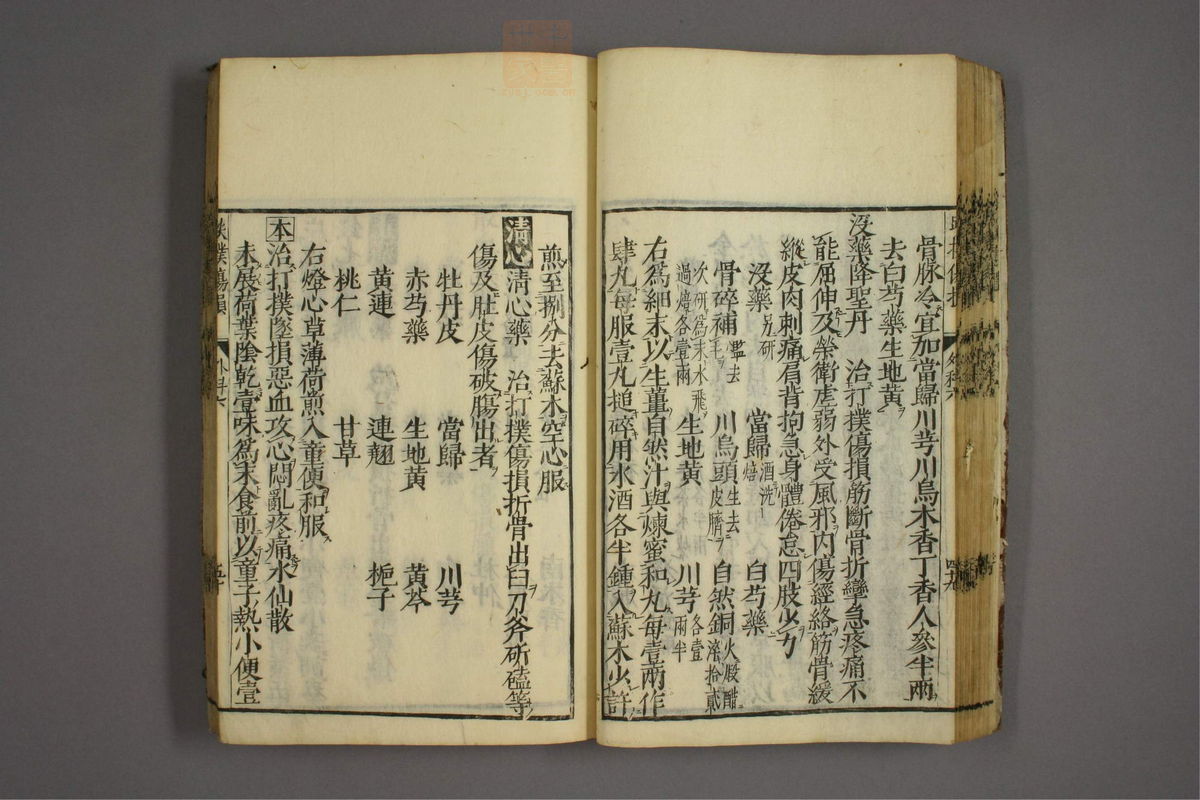 骨脉冷宜加當歸川芎川烏木香丁香人參半兩
去白芍藥生地黄
没藥降聖丹 治打撲傷損筋斷骨折攣急疼痛不
能屈伸及榮衛虚弱外受風邪内傷經絡筋骨緩
縱皮肉刺痛肩背拘急身體倦怠四肢少力
没藥另研 當歸酒洗焙 白芍藥
骨碎補去毛 川烏頭生去皮臍 自然銅火煅醋淬拾貳
次研爲末水飛過焙各壹兩 生地黄 川芎各壹兩半
右爲細末以生薑自然汁與煉蜜和丸每壹兩作
肆丸每服壹丸搥碎用水酒各半鍾入蘇木少許
煎至捌分去蘇木空心服
清心 清心藥 治打撲傷損折骨出臼刀斧斫磕等
傷及肚皮傷破腸出者
牡丹皮 當歸 川芎
赤芍藥 生地黄 黄芩
黄連 連翹 梔子
桃仁 甘草
右燈心草薄荷煎入童便和服
本 治打撲墜損惡血攻心悶亂疼痛水仙散
未展荷葉陰乾壹味爲末食前以童子熱小便壹
撲傷損 外科六